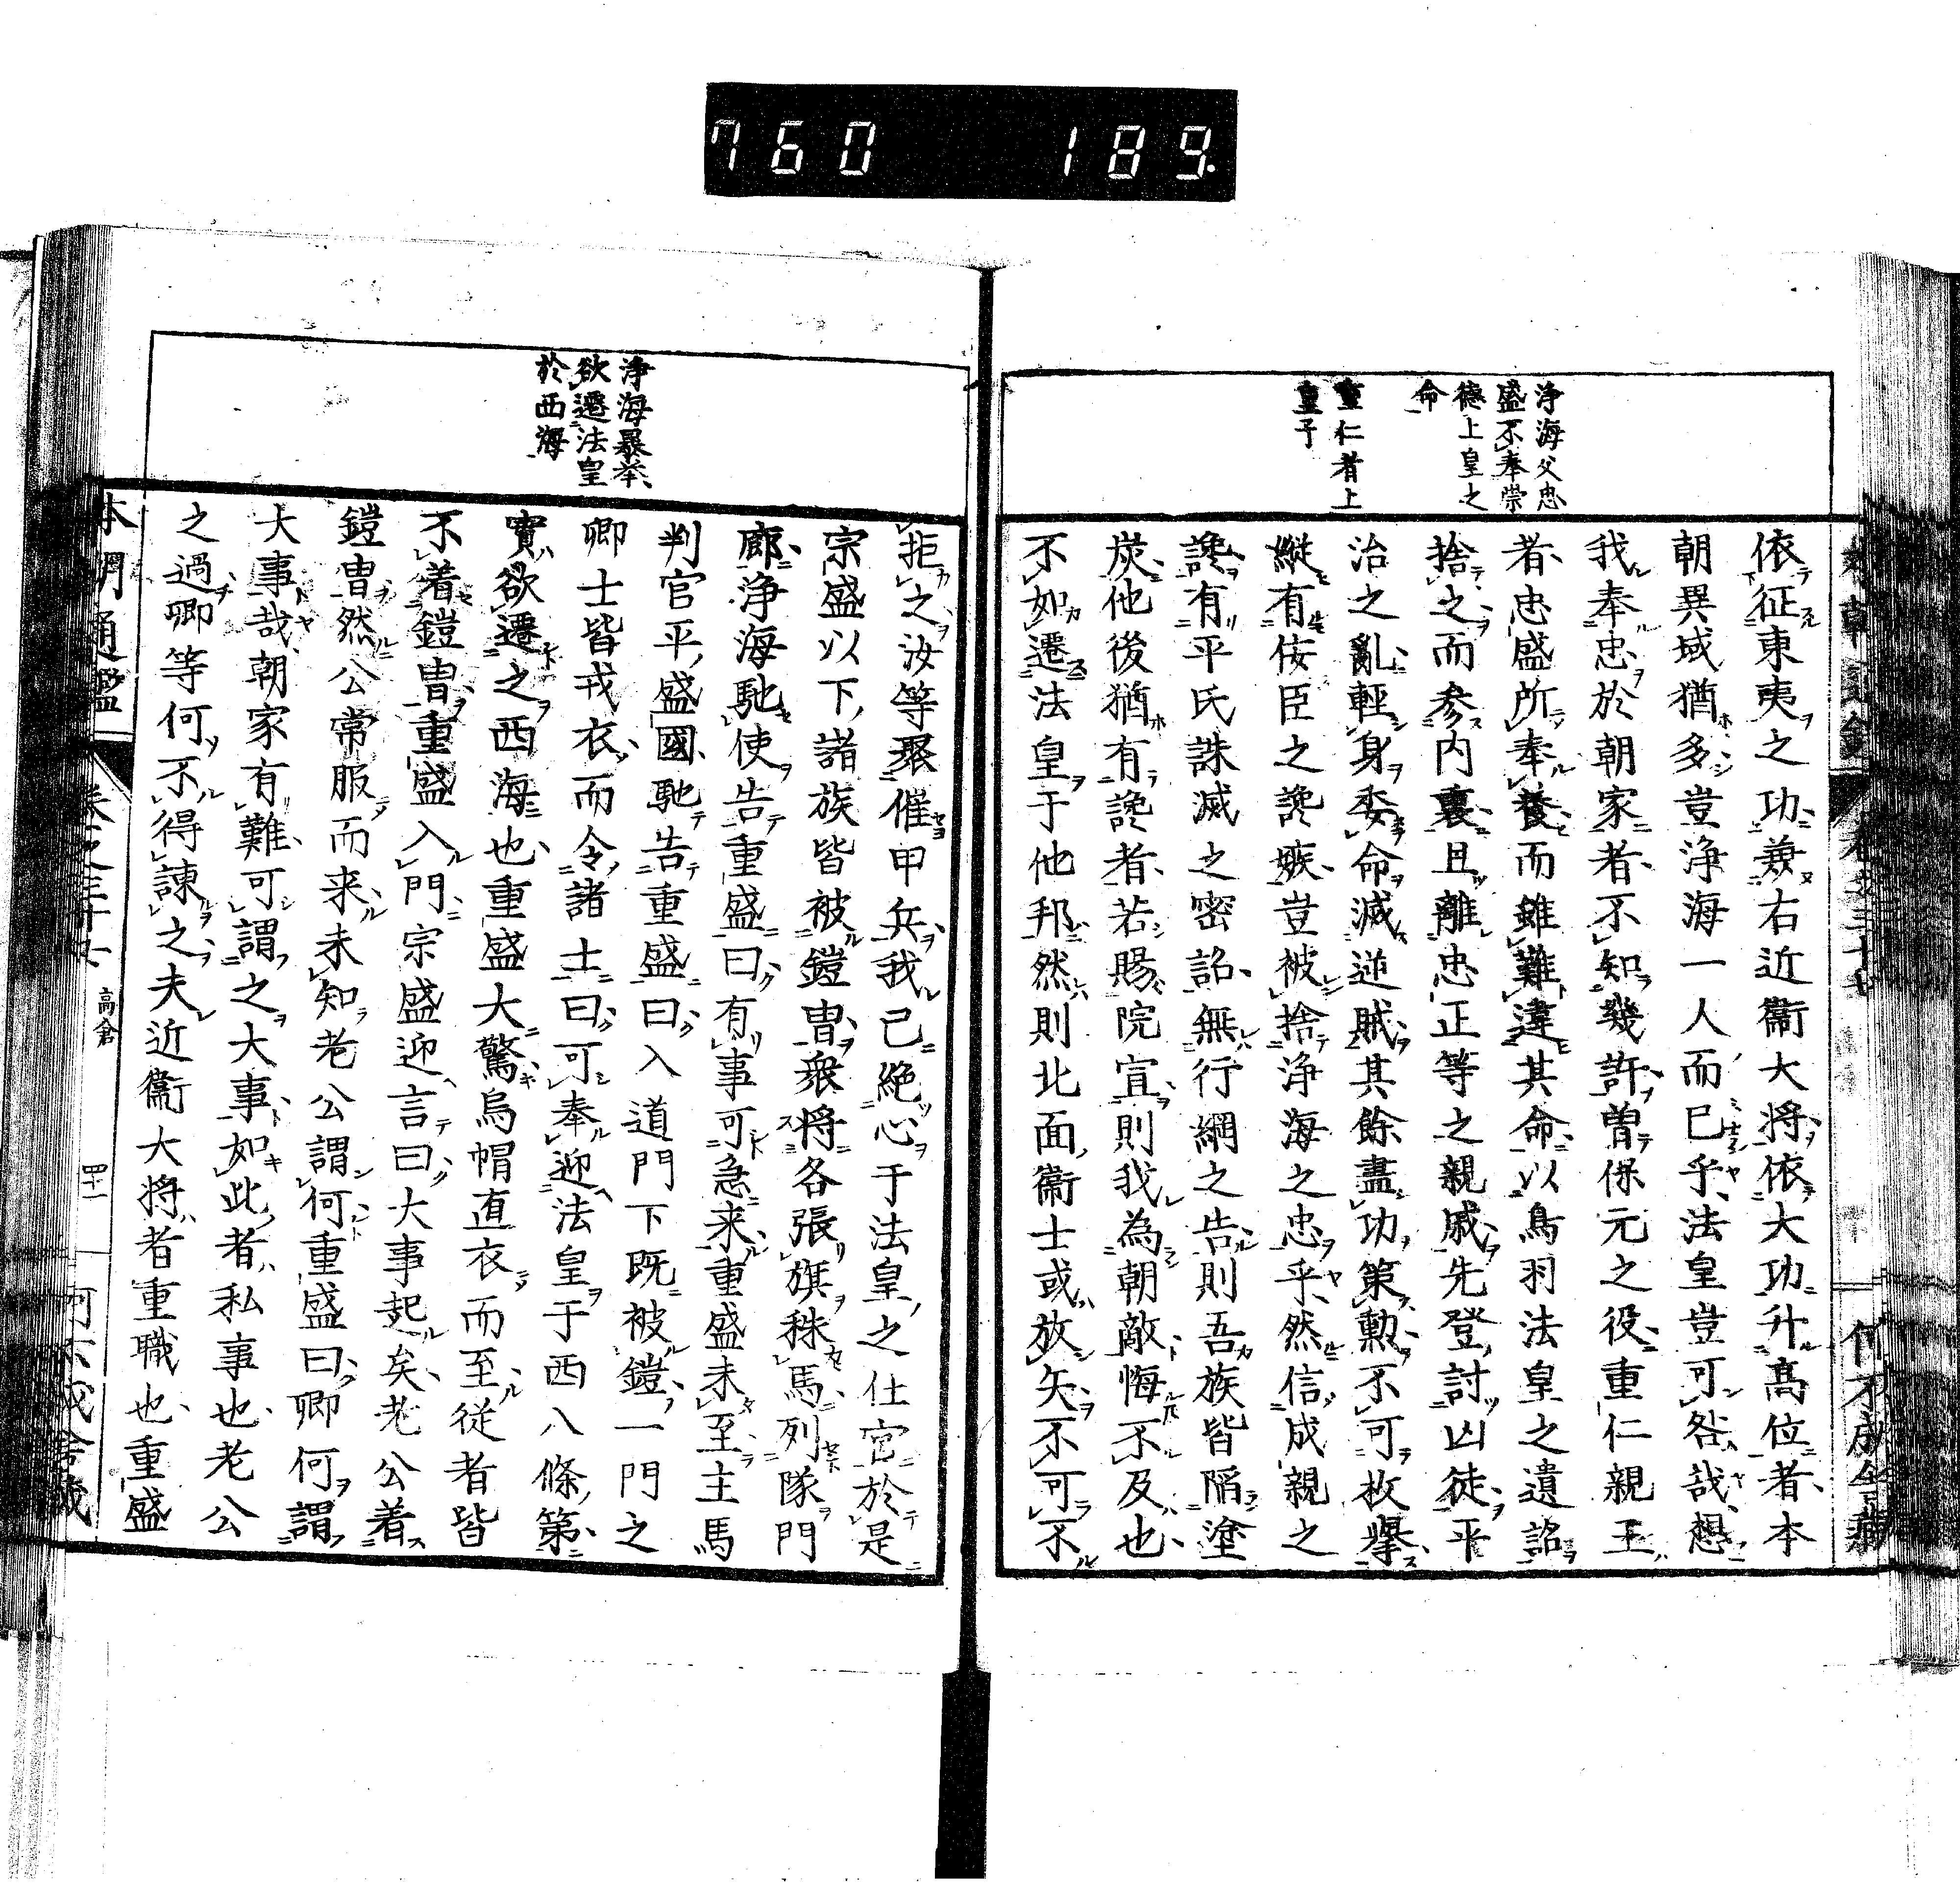 760 189.
淨海父忠
盛不奉崇
德上皇之
命
重仁者上
皇子
依征東夷之功兼右近衞大將依大功升高位者本
朝異域猶多豈淨海一人而已乎法皇豈可咎哉想
我奉忠於朝家者不知幾許曽保元之役重仁親王
者忠盛所奉養而雖難違其命以鳥羽法皇之遺詔
捨之而参内裏且離忠正等之親戚先登討凶徒平
治之亂輕身委命滅逆賊其餘盡功策勲不可枚擧
縱有侫臣之讒嫉豈被捨淨海之忠乎然信成親之
讒有平氏誅滅之密詔無行綱之告則吾族皆陷塗
炭他後猶有讒者若賜院宣則我為朝敵悔不及也
不如遷法皇于他邦然則北面衞士或放矢不可不
淨海暴挙
欲遷法皇
於西海
拒之汝等聚催甲兵我已絶心于法皇之仕官於是
宗盛以下諸族皆被鎧冑衆將各張旗秣馬列隊門
廊淨海馳使告重盛曰有事可急来重盛未至主馬
判官平盛國馳告重盛曰入道門下既被鎧一門之
卿士皆戎衣而令諸士曰可奉迎法皇于西八條第
實欲遷之西海也重盛大驚烏帽直衣而至従者皆
不着鎧冑重盛入門宗盛迎言曰大事起矣老公着
鎧冑然公常服而来未知老公謂何重盛曰卿何謂
大事哉朝家有難可謂之大事如此者私事也老公
之過卿等何不得諫之夫近衞大将者重職也重盛
本朝通鑑
高倉